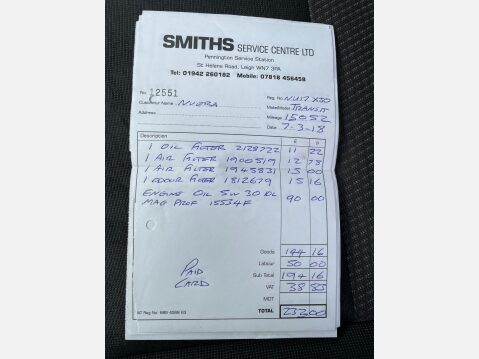 SMITHS SERVICE CENTRE LTD
Pennington Service Station
St Helens Road, Leigh WN7 3PA
Tel: 01942 260182 Mobile: 07818 456458
No. 12551 Reg. No. NU17 XSO
Customer Name NUERA Make/Model TRANSIT
Address Mileage 15052
Date 7-3-18
Description £ p
1 OIL FILTER 2128722 11 22
1 AIR FILTER 1900519 12 78
1 AIR FILTER 1945831 15 00
1 ODOUR FILTER 1812679 15 16
ENGINE OIL 5W 30 10L 90 00
MAG PROF 15534F
Goods 144 16
Labour 50 00
PAID Sub Total 194 16
CARD VAT 38 83
MOT
TOTAL 232.00